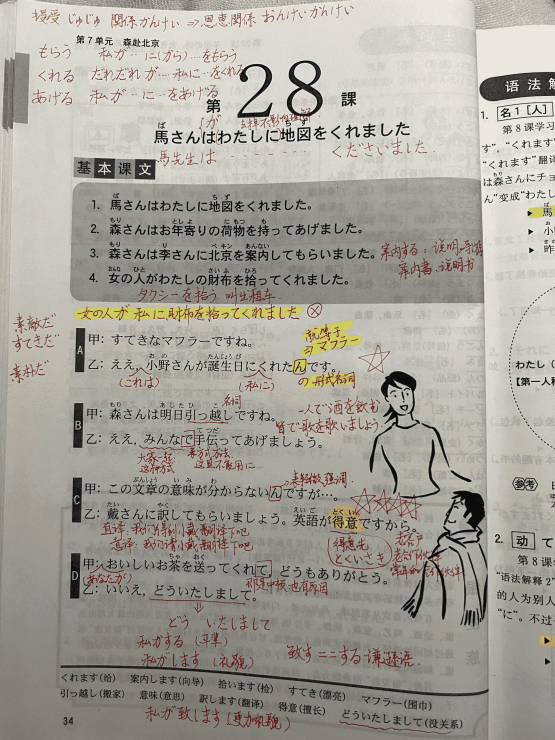 授受 じゅじゅ 関係 かんけい ⇒ 恩恵関係 おんけいかんけい
第7单元 森赴北京
もらう 私が…に(から)…をもらう
くれる だれだれが…私に…をくれる
あげる 私が…に…をあげる
第28課
が
馬さんはわたしに地図をくれました
ば ち ず
馬先生は くださいました
基本课文
1. 馬さんはわたしに地図をくれました。
2. 森さんはお年寄りの荷物を持ってあげました。
3. 森さんは李さんに北京を案内してもらいました。
案内する：说明
案内書：说明书
4. 女の人がわたしの財布を拾ってくれました。
タクシーを拾う 叫出租车
女の人が 私に財布を拾ってくれました
素敵だ
すてきだ
マフラー
A
甲：すてきなマフラーですね。
乙：ええ，小野さんが誕生日にくれたんです。
(これは) (私に)
の 形式名词
名词
B
甲：森さんは明日引っ越しですね。
乙：ええ，みんなで手伝ってあげましょう。
一人で酒を飲む
皆で歌を歌いましょう
C
甲：この文章の意味が分からないんですが…。
乙：戴さんに訳してもらいましょう。英語が得意ですから。
得意先
とくいさき
老客户
D
甲：おいしいお茶を送ってくれて，どうもありがとう。
(あなたが)
乙：いいえ，どういたしまして。
どう いたしまして
私がする (平準)
私がします (礼貌)
致す＝＝する 謙遜語
くれます(给) 案内します(向导) 拾います(捡) すてき(漂亮) マフラー(围巾)
引っ越し(搬家) 意味(意思) 訳します(翻译) 得意(擅长) どういたしまして(没关系)
34
私が致します (更加礼貌)
语法解
1. 名1[人]
第8课学习
す"，"くれます"
"くれます"翻译
は森さんにチョ
ん"变成"わたし
▶ 馬
▶ 小
▶ 昨
わたし
【第一人称
参考
2. 动 て
第8课学
"语法解释2"
的人为别人
"に"。不过